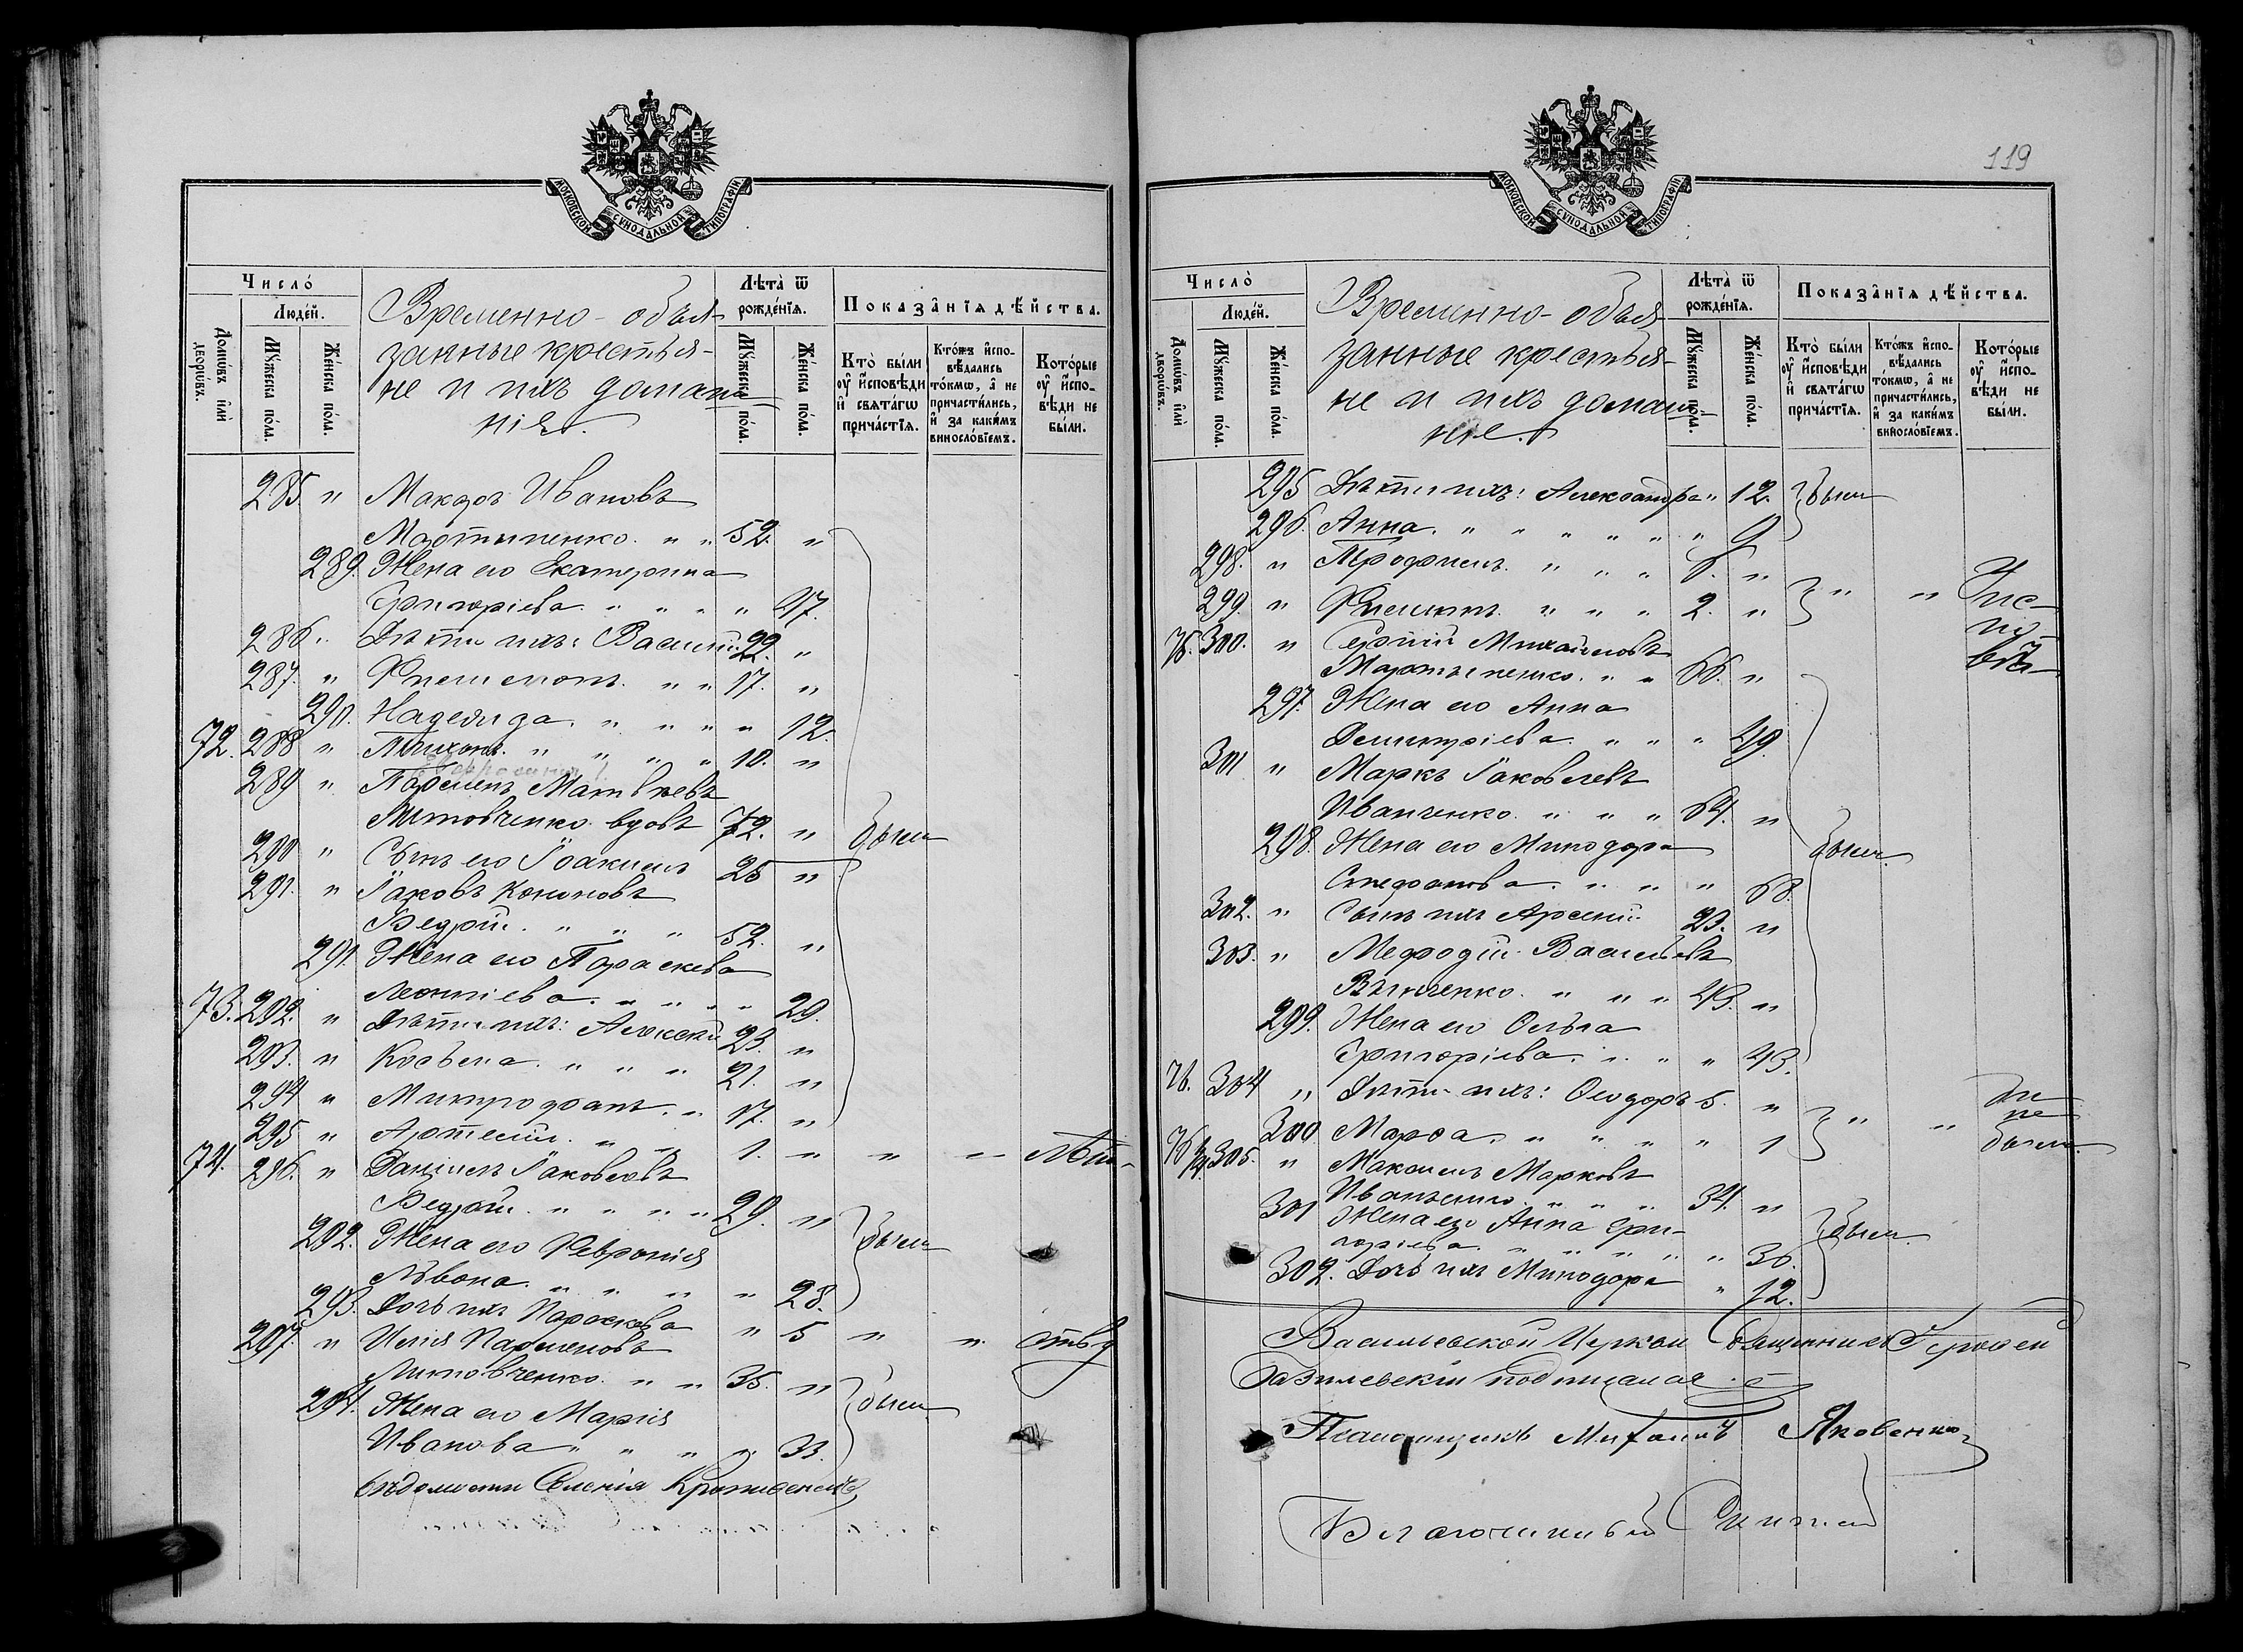 МОСКОВСКОЙ СѴНОДАЛЬНОЙ ТИПОГРАФІИ
Число̀
Людéй.
Домѡ́въ и҆лѝ дворѡ́въ.
Мꙋ́жеска по́ла.
Же́нска по́ла.
Временно-обя-
занные крестья-
не и ихъ домаш-
ніе.
Лѣта̀ ѿ рожде́нїѧ.
Мꙋ́жеска по́ла.
Же́нска по́ла.
Показа̑нїѧ дѣ́йства.
Кто̀ бы́ли оу҆ и҆сповѣ́ди и҆ свѧта́гѡ прича́стїѧ.
Кто́жъ и҆сповѣ́дались то́кмѡ, а҆ не причасти́лись, и҆ за каки́мъ винослові́емъ.
Кото́рые оу҆ и҆сповѣ́ди не бы́ли.
285. " Макаръ Ивановъ
Мартыненко. " " 52. "
289. Жена его Екатерина
Григоріева. " " " " 47.
286. " Дѣти ихъ: Василій 22. "
287. " Филимонъ. " " 17. "
290. Надежда. " " " " 12.
72. 288 " Тихонъ. " " " " 10. "
289 " Парменъ Матвѣевъ
Литовченко вдовъ 72. " были
290 " Сынъ его Іоакимъ 25 "
291. " Іаковъ Кононовъ
Бедрій. " " " " 52. "
291. Жена его Параскева
Леонтіева. " " " " 29.
73. 292. " Дѣти ихъ: Алексѣй 23. "
293. " Косьма. " " " " 21. "
294 " Митрофанъ. " 17. "
295 " Артемій. " " 1. " " "
74. 296. " Даніилъ Іаковлевъ
Бедрій. " " " " 29. "
292. Жена его Февронія были
Львова. " " " " 28.
293. Дочь ихъ Параскева " 5 " "
297. " Илія Парменовъ
Литовченко. " " 35. "
294. Жена его Марія были
Иванова " " " " 33.
вѣдомости Селенія
119
МОСКОВСКОЙ СѴНОДАЛЬНОЙ ТИПОГРАФІИ
Число̀
Людéй.
Домѡ́въ и҆лѝ дворѡ́въ.
Мꙋ́жеска по́ла.
Же́нска по́ла.
Временно-обя-
занные крестья-
не и ихъ домаш-
ніе.
Лѣта̀ ѿ рожде́нїѧ.
Мꙋ́жеска по́ла.
Же́нска по́ла.
Показа̑нїѧ дѣ́йства.
Кто̀ бы́ли оу҆ и҆сповѣ́ди и҆ свѧта́гѡ прича́стїѧ.
Кто́жъ и҆сповѣ́дались то́кмѡ, а҆ не причасти́лись, и҆ за каки́мъ винослові́емъ.
Кото́рые оу҆ и҆сповѣ́ди не бы́ли.
295 Дѣти ихъ: Александра " 12. были
296. Анна. " " " " " " 9
298. " Трофимъ. " " " 6. "
299. " Филиппъ. " " " 2. " " "
75. 300. " Сергій Михайловъ
Мартыненко. " " 66. "
297. Жена его Анна
Димитріева. " " " 49.
301 " Маркъ Іаковлевъ
Иванченко. " " " 64. "
298. Жена его Минодора были.
Стефанова. " " " 68.
302. " Сынъ ихъ Арсеній 23. "
303. " Мефодій Васильевъ
Вѣнченко. " " " 43. "
299. Жена его Ольга
Григоріева. " " " 43.
76. 304 " Дѣти ихъ: Ѳеодоръ 5. " не
300 Марѳа. " " " " 1 " " были.
305. " Максимъ Марковъ
Иваненко. " " " 34. "
301 Жена его Анна Гри- были.
горіева. " " " " " 30.
302. Дочь ихъ Минодора " 12.
Васильевской Церкви Священникъ
Базилевскій подписался
Псаломщикъ Михаилъ Яковенко
Благочинный